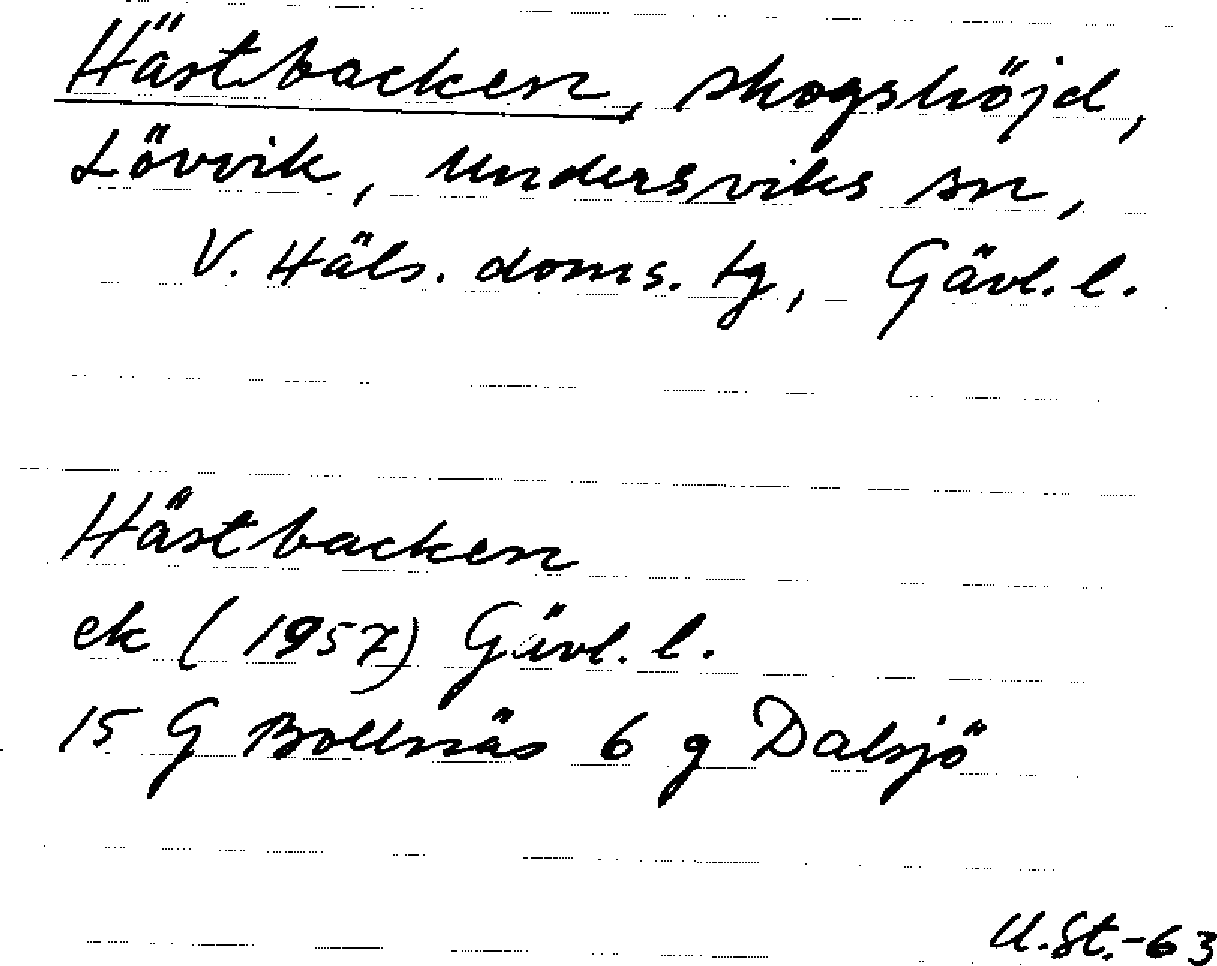 Hästbacken, skogshöjd,
Lövvik, Undersviks sn,
V. Häls. doms. tg, Gävl. l.
Hästbacken
ek (1957) Gävl. l.
15 G Bollnäs 6 g Dalsjö
U.St.-63